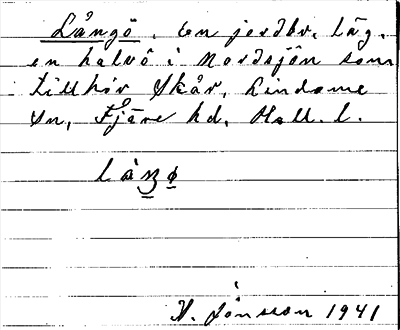 Långö. En jordbr. läg.
en halvö i Nordsjön som
tillhör Skår, Lindome
sn, Fjäre hd, Hall. l.
làŋø
H. Jönsson 1941